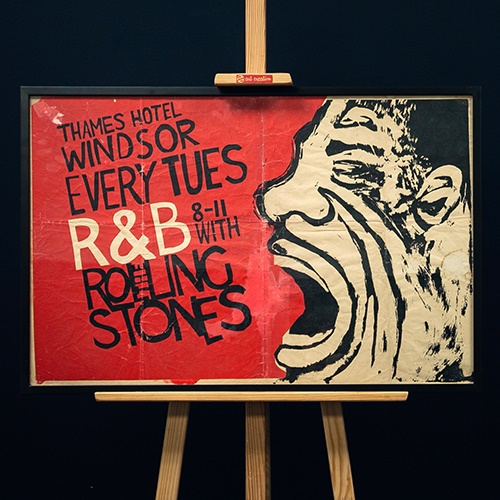 THAMES HOTEL
WINDSOR
EVERY TUES
R&B 8-11
WITH
ROLLING
STONES